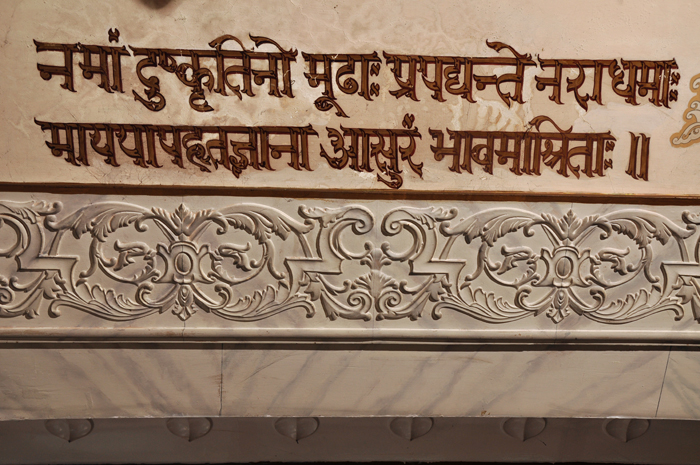 नमां दुष्कृतिनो मूढाः प्रपद्यन्ते नराधमाः
माययापहृतज्ञाना आसुरं भावमाश्रिताः ॥